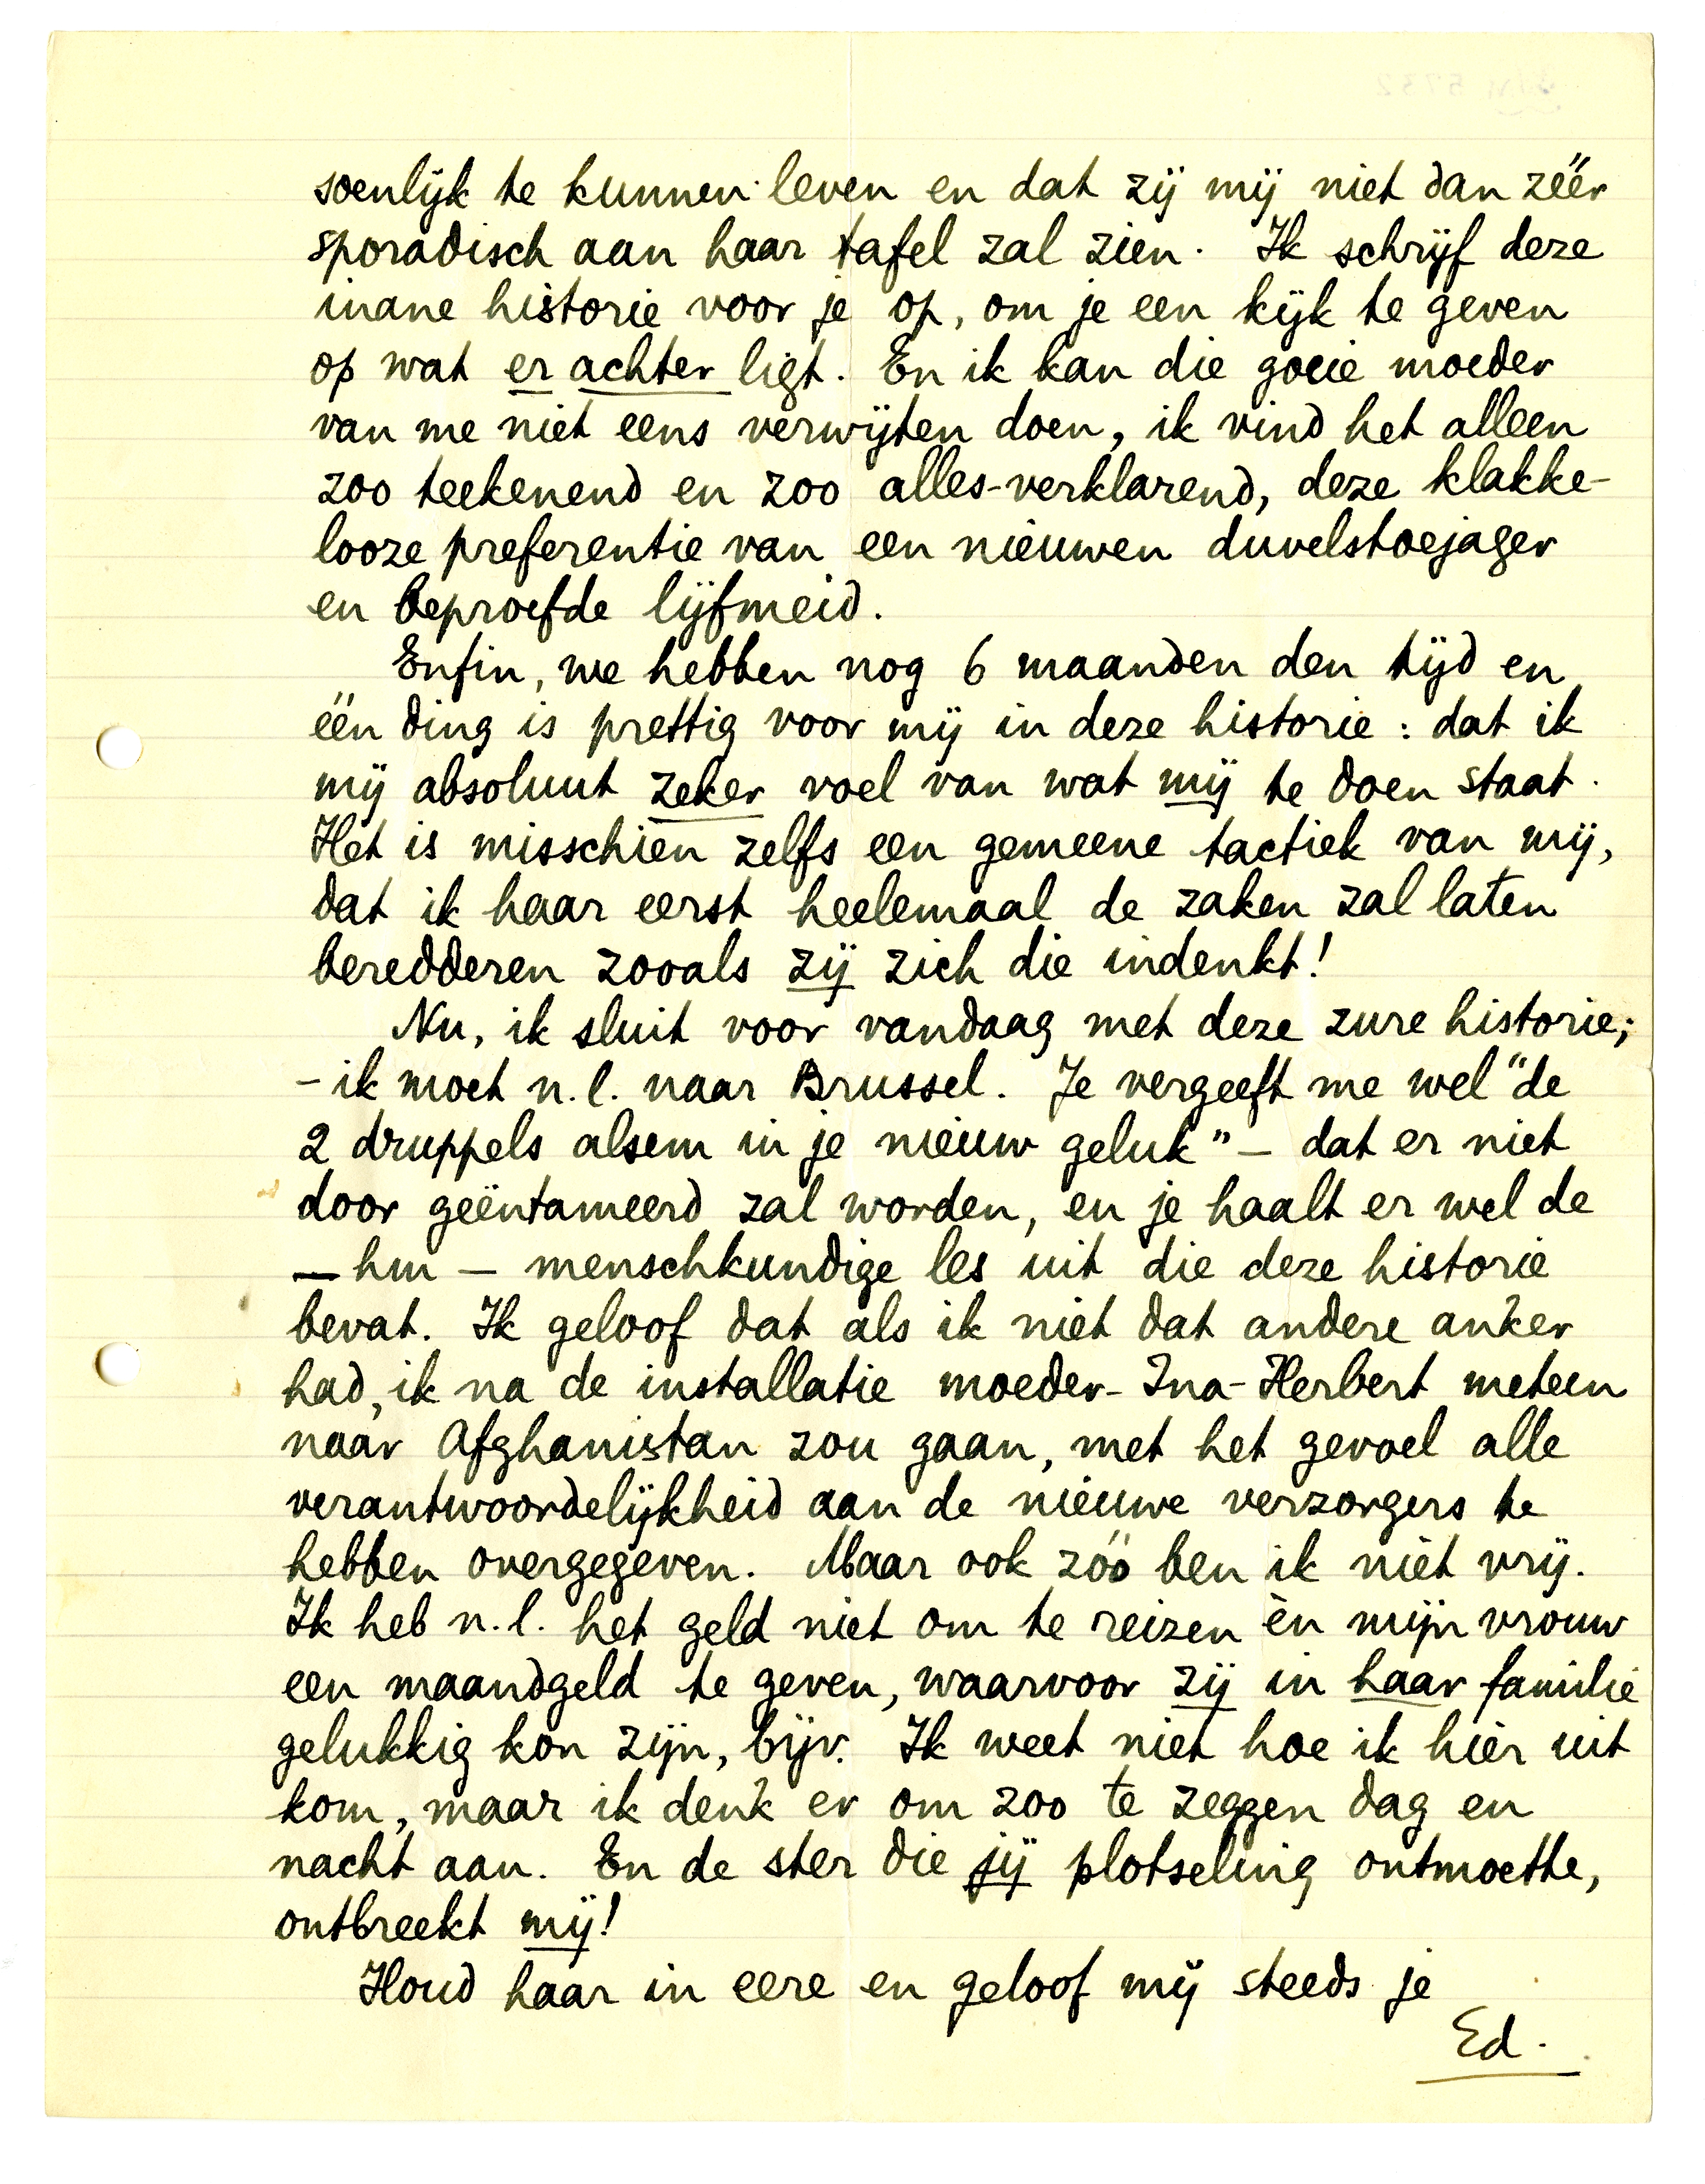 soenlijk te kunnen leven en dat zij mij niet dan zéér
sporadisch aan haar tafel zal zien. Ik schrijf deze
inane historie voor je op, om je een kijk te geven
op wat er achter ligt. En ik kan die goeie moeder
van me niet eens verwijten doen, ik vind het alleen
zoo teekenend en zoo alles-verklarend, deze klakke-
looze preferentie van een nieuwen duvelstoejager
en beproefde lijfmeid.
Enfin, we hebben nog 6 maanden den tijd en
één ding is prettig voor mij in deze historie: dat ik
mij absoluut zeker voel van wat mij te doen staat.
Het is misschien zelfs een gemeene tactiek van mij,
dat ik haar eerst heelemaal de zaken zal laten
beredderen zooals zij zich die indenkt!
Nu, ik sluit voor vandaag met deze zure historie;
- ik moet n.l. naar Brussel. Je vergeeft me wel "de
2 druppels alsem in je nieuw geluk" – dat er niet
door geëntameerd zal worden, en je haalt er wel de
– hm – menschkundige les uit die deze historie
bevat. Ik geloof dat als ik niet dat andere anker
had, ik na de installatie moeder-Ina-Herbert meteen
naar Afghanistan zou gaan, met het gevoel alle
verantwoordelijkheid aan de nieuwe verzorgers te
hebben overgegeven. Maar ook zóó ben ik niet vrij.
Ik heb n.l. het geld niet om te reizen èn mijn vrouw
een maandgeld te geven, waarvoor zij in haar familie
gelukkig kon zijn, bijv. Ik weet niet hoe ik hier uit
kom, maar ik denk er om zoo te zeggen dag en
nacht aan. En de ster die jij plotseling ontmoette,
ontbreekt mij!
Houd haar in eere en geloof mij steeds je
Ed.